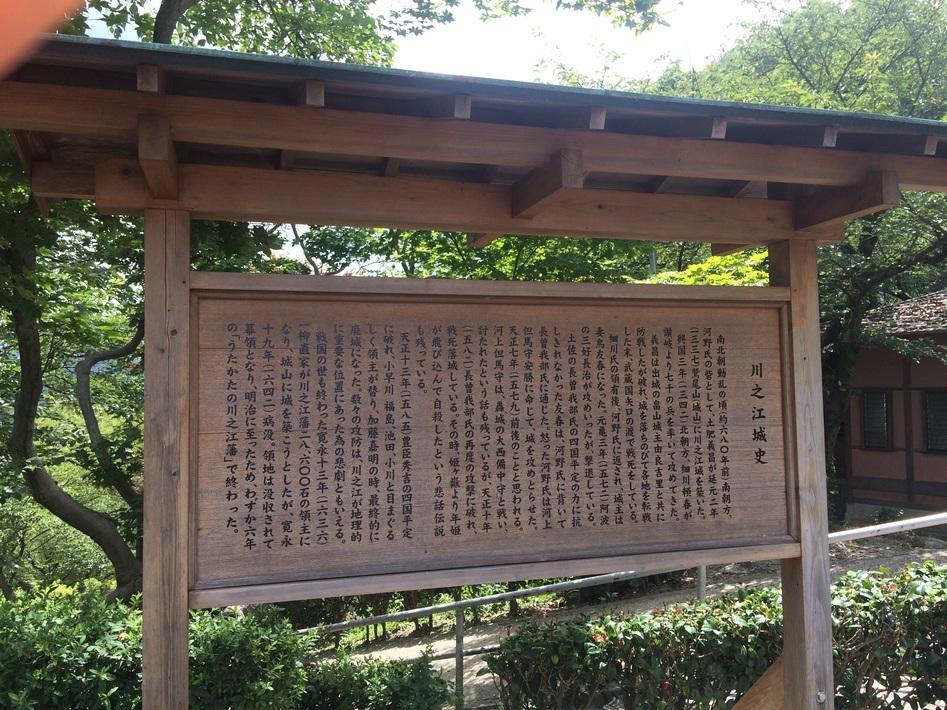 川之江城史
南北朝動乱の頃(約六八〇年前)南朝方、
河野氏の砦として、土肥義昌が延元二年
(一三三七)鷲尾山(城山)に川之江城を築いた。
興国三年(一三四二)北朝方、細川頼春が
讃岐より七千の兵を率いて攻めて来た。
義昌は出城の畠山城主由良吉里と共に
防戦したが破れ、城を落ちのびて各地を転戦
した末、武蔵国矢口の渡で戦死をした。
細川氏の領有後、河野氏に返され、城主は
妻鳥友春になった。元亀三年(一五七二)阿波
の三好長治が攻め入ったが撃退している。
土佐の長曽我部氏の四国平定の力に抗
しきれなかった友春は、河野氏に背いて
長曽我部氏に通じた。怒った河野氏は河上
但馬守安勝に命じて、城を攻めとらせた。
天正七年(一五七九)前後のことと思われる。
河上但馬守は、轟城の大西備中守と戦い、
討たれたという話も残っているが、天正十年
(一五八二)長曽我部氏の再度の攻撃に破れ、
戦死落城している。その時、姫ヶ嶽より年姫
が飛び込んで自殺したという悲話伝説
も残っている。
天正十三年(一五八五)豊臣秀吉の四国平定
に破れ、小早川、福島、池田、小川と目まぐる
しく領主が替り、加藤嘉明の時、最終的に
廃城になった。数々の攻防は、川之江が地理的
に重要な位置にあった為の悲劇ともいえる。
戦国の世も終わった寛永十三年(一六三六)
一柳直家が川之江藩二八、六〇〇石の領主に
なり、城山に城を築こうとしたが、寛永
十九年(一六四二)病没。領地は没収されて
幕領となり、明治に至ったため、わずか六年
の「うたかたの川之江藩」で終わった。